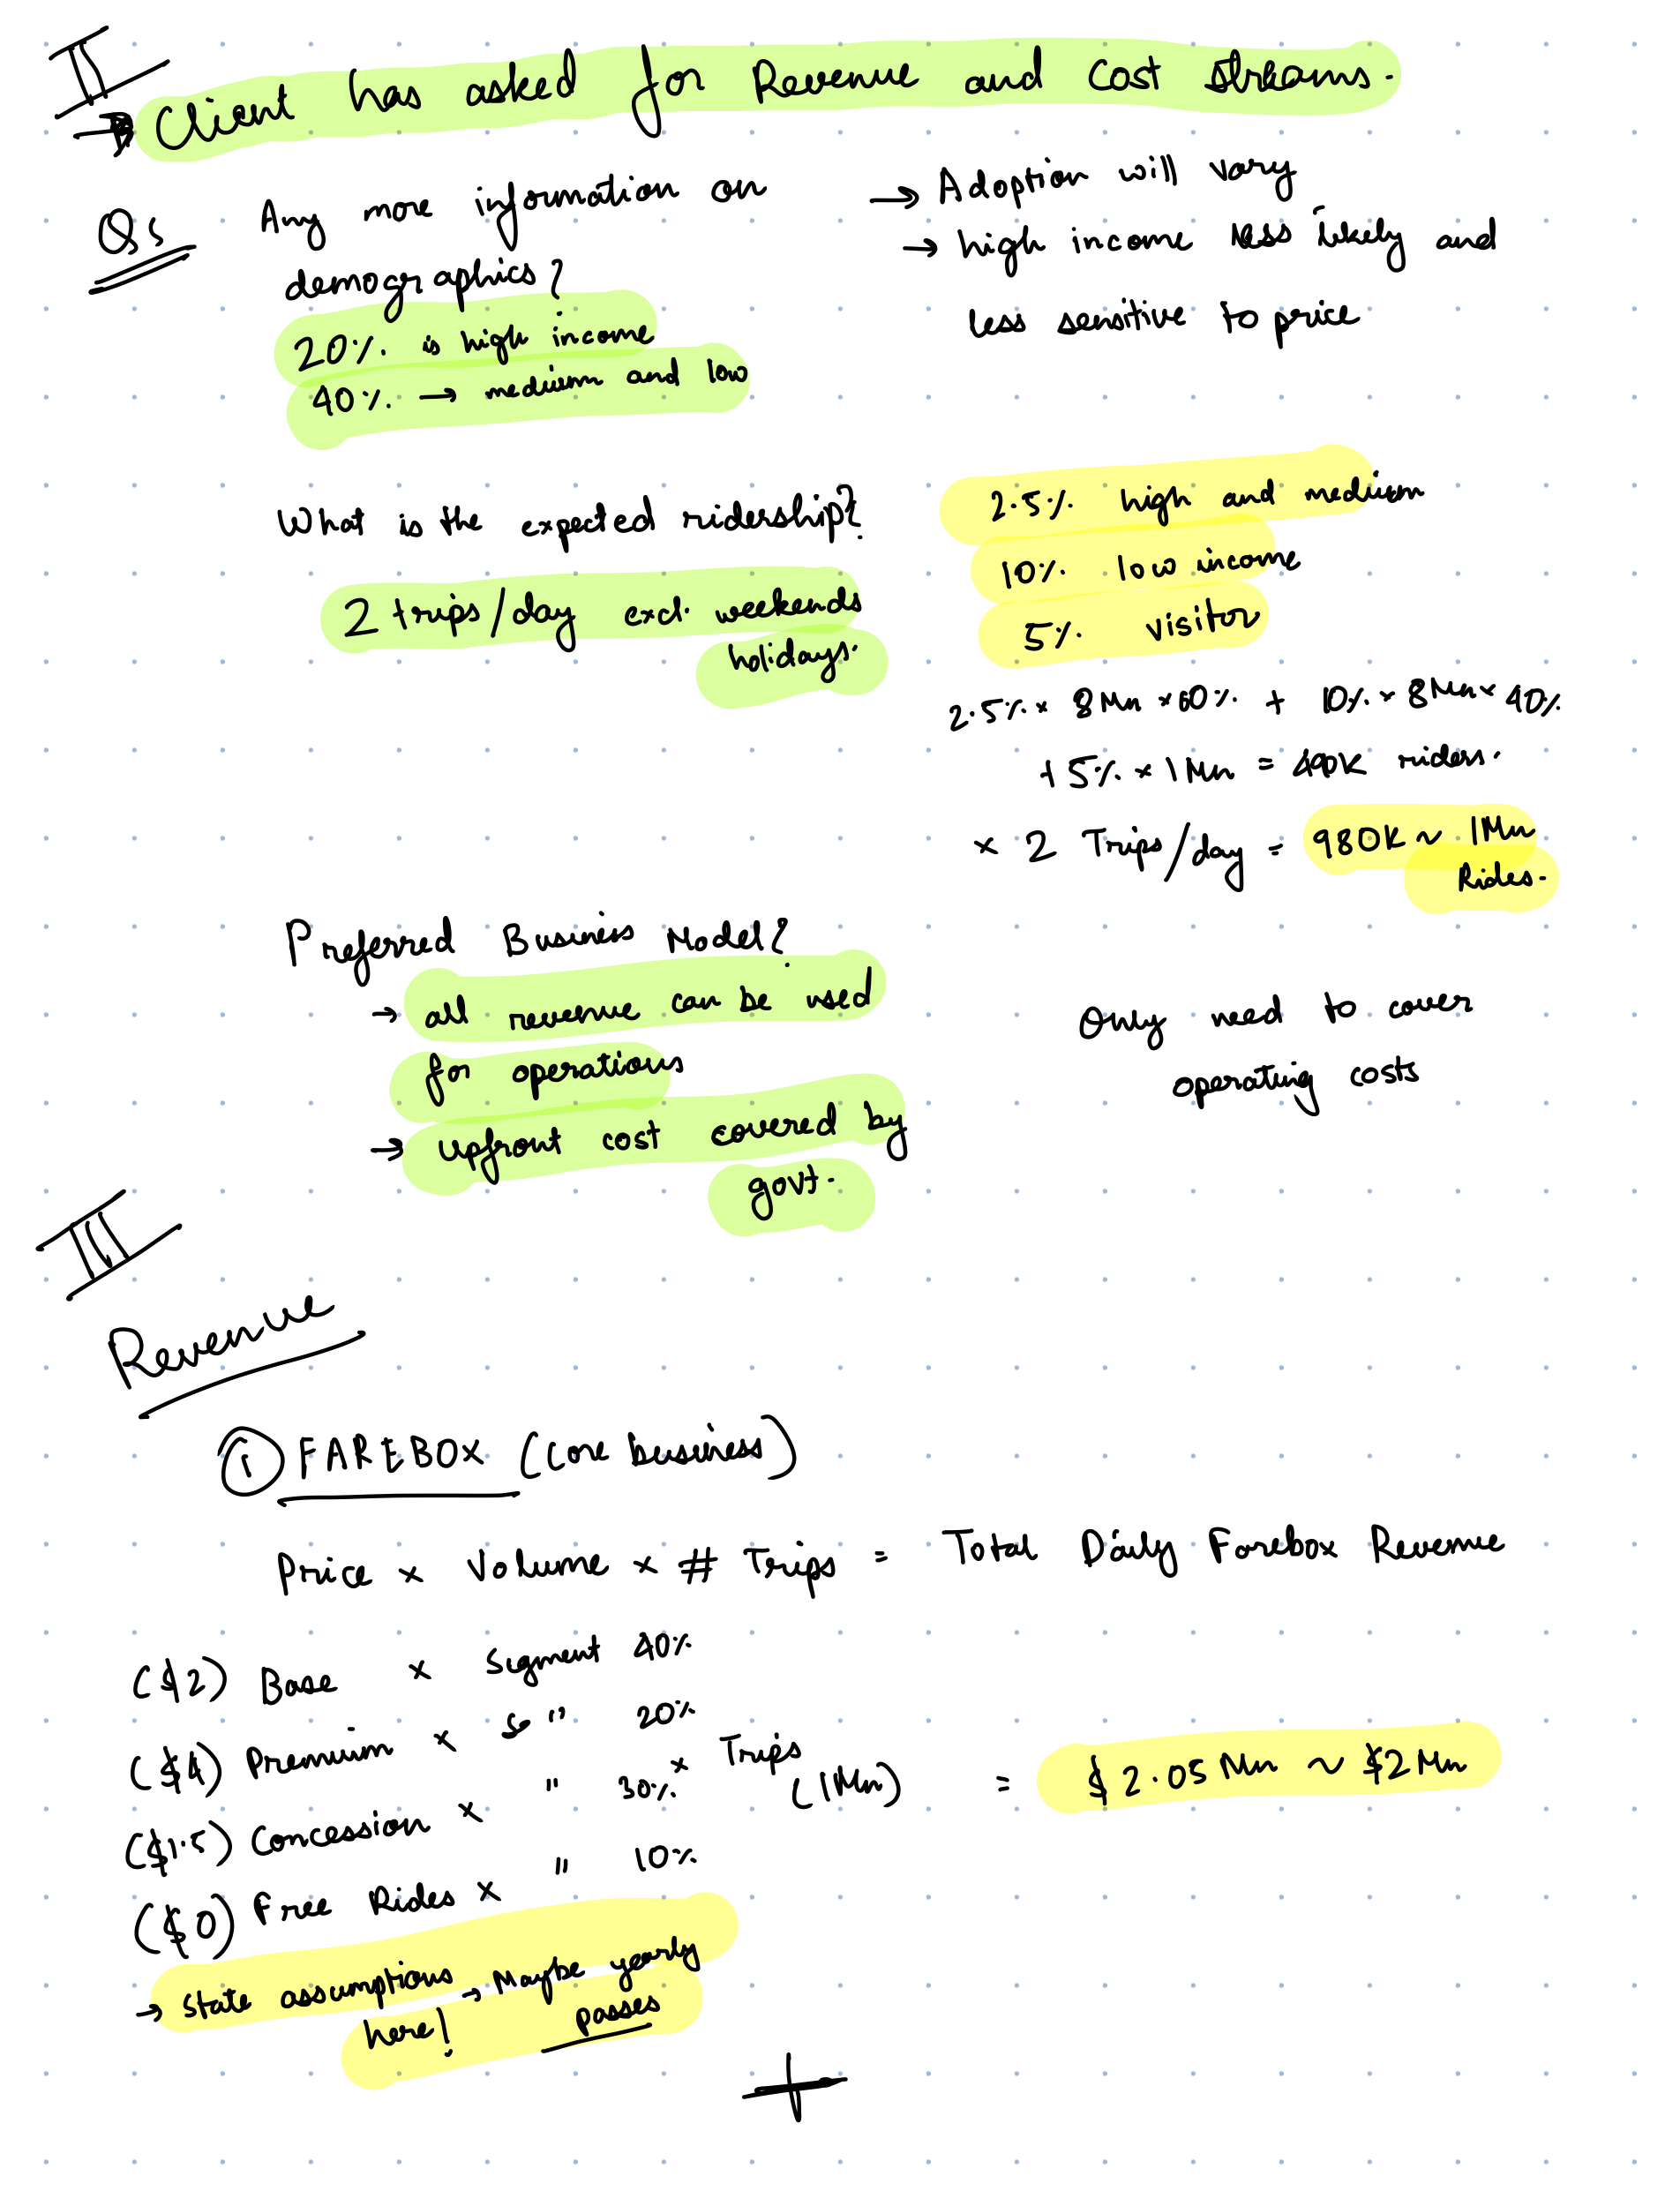 II
→ Client has asked for Revenue and Cost streams.
Qs
Any more information on
demographics?
20% is high income
40% → medium and low
→ Adoption will vary
→ high income less likely and
less sensitive to price
What is the expected ridership?
2 trips/day excl. weekends
holidays.
2.5% high and medium
10% low income
5% visitor
2.5% × 8 Mn × 60% + 10% × 8 Mn × 40%
+ 5% × 1 Mn = 490K riders.
× 2 Trips/day = 980K ~ 1Mn
Rides.
Preferred Business Model?
→ all revenue can be used
for operations
→ upfront cost covered by
govt.
Only need to cover
operating costs
III
Revenue
① FAREBOX (Core business)
Price × Volume × # Trips = Total Daily Farebox Revenue
($2) Base × Segment 40%
($4) Premium × " 20%
($1.5) Concession × " 30% × Trips (1Mn) = $2.05 Mn ~ $2 Mn
($0) Free Rides × " 10%
→ State assumptions → Maybe yearly
here! passes
+